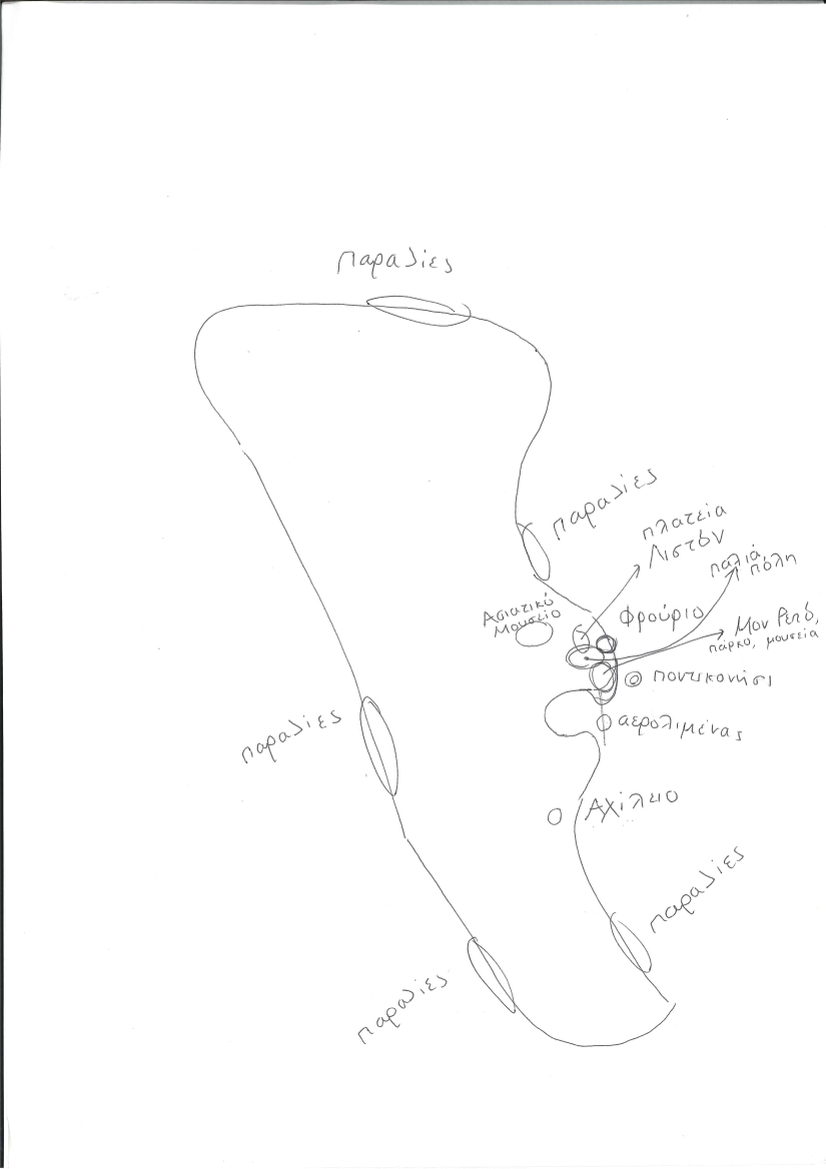 παραλίες
παραλίες
πλατεία
Λιστόν
παλιά
πόλη
Ασιατικό
Μουσείο
Φρούριο
Μον Ρεπό,
πάρκο, μουσεία
ποντικονήσι
αερολιμένας
παραλίες
Αχίλειο
παραλίες
παραλίες